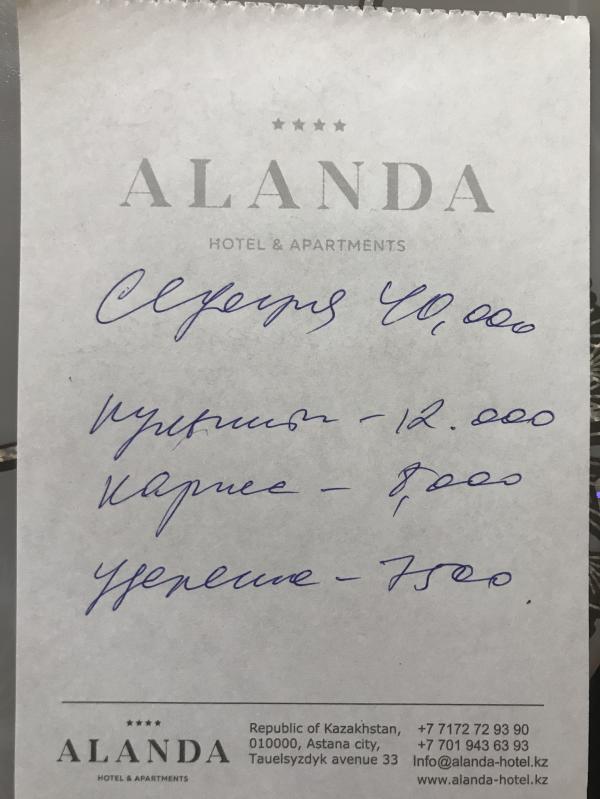 ALANDA
HOTEL & APARTMENTS
40,000
– 12.000
– 8,000
– 7500
ALANDA
HOTEL & APARTMENTS
Republic of Kazakhstan,
010000, Astana city,
Tauelsyzdyk avenue 33
+7 7172 72 93 90
+7 701 943 63 93
Info@alanda-hotel.kz
www.alanda-hotel.kz